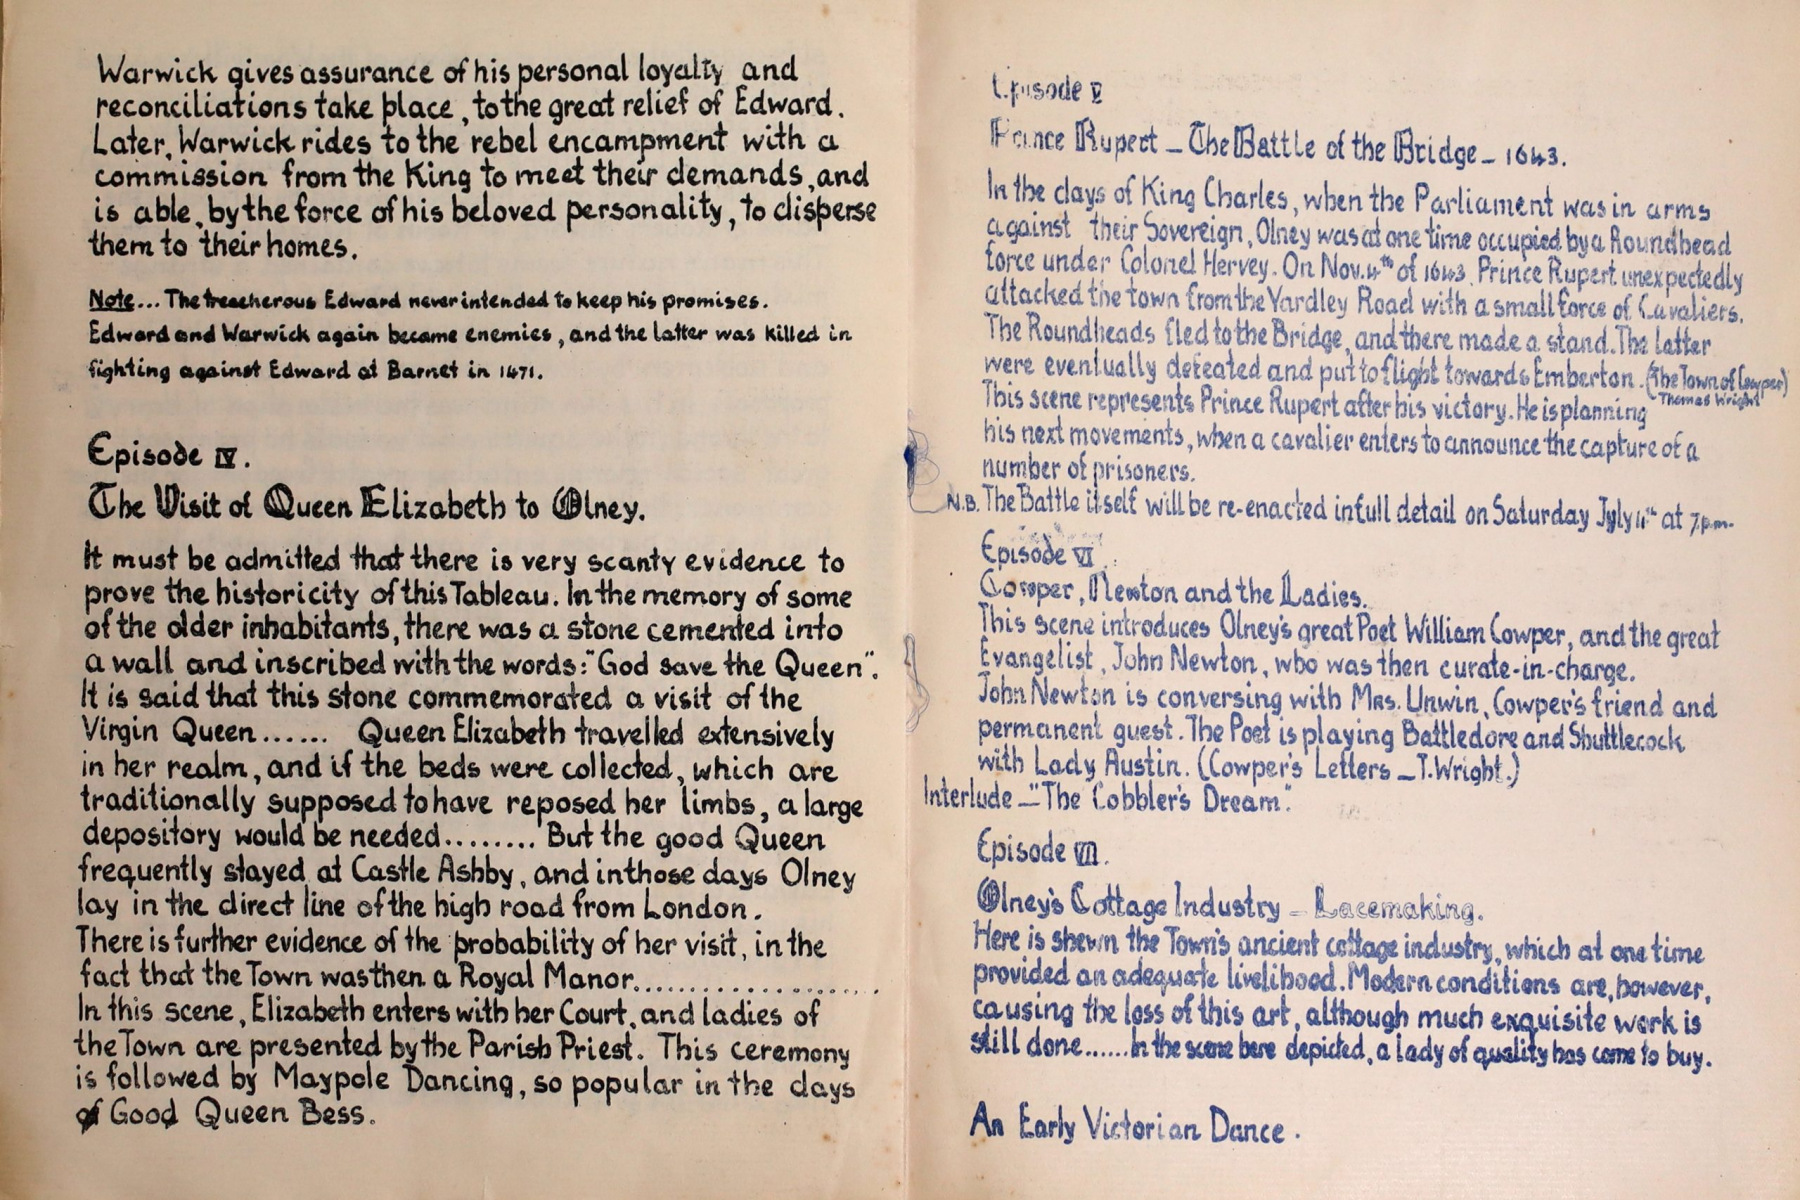 Warwick gives assurance of his personal loyalty and
reconciliations take place, to the great relief of Edward.
Later, Warwick rides to the rebel encampment with a
commission from the King to meet their demands, and
is able, by the force of his beloved personality, to disperse
them to their homes.
Note... The treacherous Edward never intended to keep his promises.
Edward and Warwick again became enemies, and the latter was killed in
fighting against Edward at Barnet in 1471.
Episode IV.
The Visit of Queen Elizabeth to Olney.
It must be admitted that there is very scanty evidence to
prove the historicity of this Tableau. In the memory of some
of the older inhabitants, there was a stone cemented into
a wall and inscribed with the words: "God save the Queen".
It is said that this stone commemorated a visit of the
Virgin Queen...... Queen Elizabeth travelled extensively
in her realm, and if the beds were collected, which are
traditionally supposed to have reposed her limbs, a large
depository would be needed........ But the good Queen
frequently stayed at Castle Ashby, and in those days Olney
lay in the direct line of the high road from London.
There is further evidence of the probability of her visit, in the
fact that the Town was then a Royal Manor..................
In this scene, Elizabeth enters with her Court, and ladies of
the Town are presented by the Parish Priest. This ceremony
is followed by Maypole Dancing, so popular in the days
of Good Queen Bess.
Episode V
Prince Rupert – The Battle of the Bridge – 1643.
In the days of King Charles, when the Parliament was in arms
against their Sovereign, Olney was at one time occupied by a Roundhead
force under Colonel Hervey. On Nov. 4th of 1643, Prince Rupert unexpectedly
attacked the town from the Yardley Road with a small force of Cavaliers.
The Roundheads fled to the Bridge, and there made a stand. The latter
were eventually defeated and put to flight towards Emberton. (The Town of Cowper)
Thomas Wright
This scene represents Prince Rupert after his victory. He is planning
his next movements, when a cavalier enters to announce the capture of a
number of prisoners.
N.B. The Battle itself will be re-enacted in full detail on Saturday July 4th at 7.p.m.
Episode VI
Cowper, Newton and the Ladies.
This scene introduces Olney's great Poet William Cowper, and the great
Evangelist, John Newton, who was then curate-in-charge.
John Newton is conversing with Mrs. Unwin, Cowper's friend and
permanent guest. The Poet is playing Battledore and Shuttlecock
with Lady Austin. (Cowper's Letters – T. Wright.)
Interlude – "The Cobbler's Dream".
Episode VII.
Olney's Cottage Industry – Lacemaking.
Here is shewn the Town's ancient cottage industry, which at one time
provided an adequate livelihood. Modern conditions are, however,
causing the loss of this art, although much exquisite work is
still done...... In the scene here depicted, a lady of quality has come to buy.
An Early Victorian Dance.